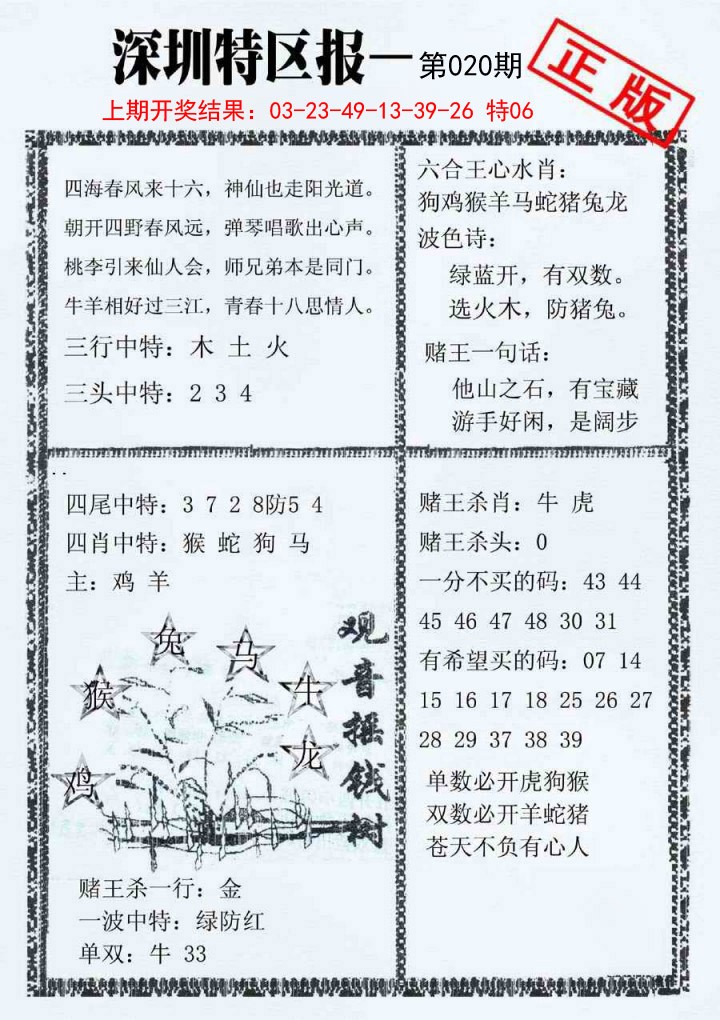 深圳特区报—第020期
正版
上期开奖结果：03-23-49-13-39-26 特06
四海春风来十六，神仙也走阳光道。
朝开四野春风远，弹琴唱歌出心声。
桃李引来仙人会，师兄弟本是同门。
牛羊相好过三江，青春十八思情人。
三行中特：木 土 火
三头中特：2 3 4
六合王心水肖：
狗鸡猴羊马蛇猪兔龙
波色诗：
绿蓝开，有双数。
选火木，防猪兔。
赌王一句话：
他山之石，有宝藏
游手好闲，是阔步
四尾中特：3 7 2 8防5 4
四肖中特：猴 蛇 狗 马
主：鸡 羊
兔
马
猴
牛
龙
鸡
观音摇钱树
赌王杀一行：金
一波中特：绿防红
单双：牛 33
赌王杀肖：牛 虎
赌王杀头：0
一分不买的码：43 44
45 46 47 48 30 31
有希望买的码：07 14
15 16 17 18 25 26 27
28 29 37 38 39
单数必开虎狗猴
双数必开羊蛇猪
苍天不负有心人